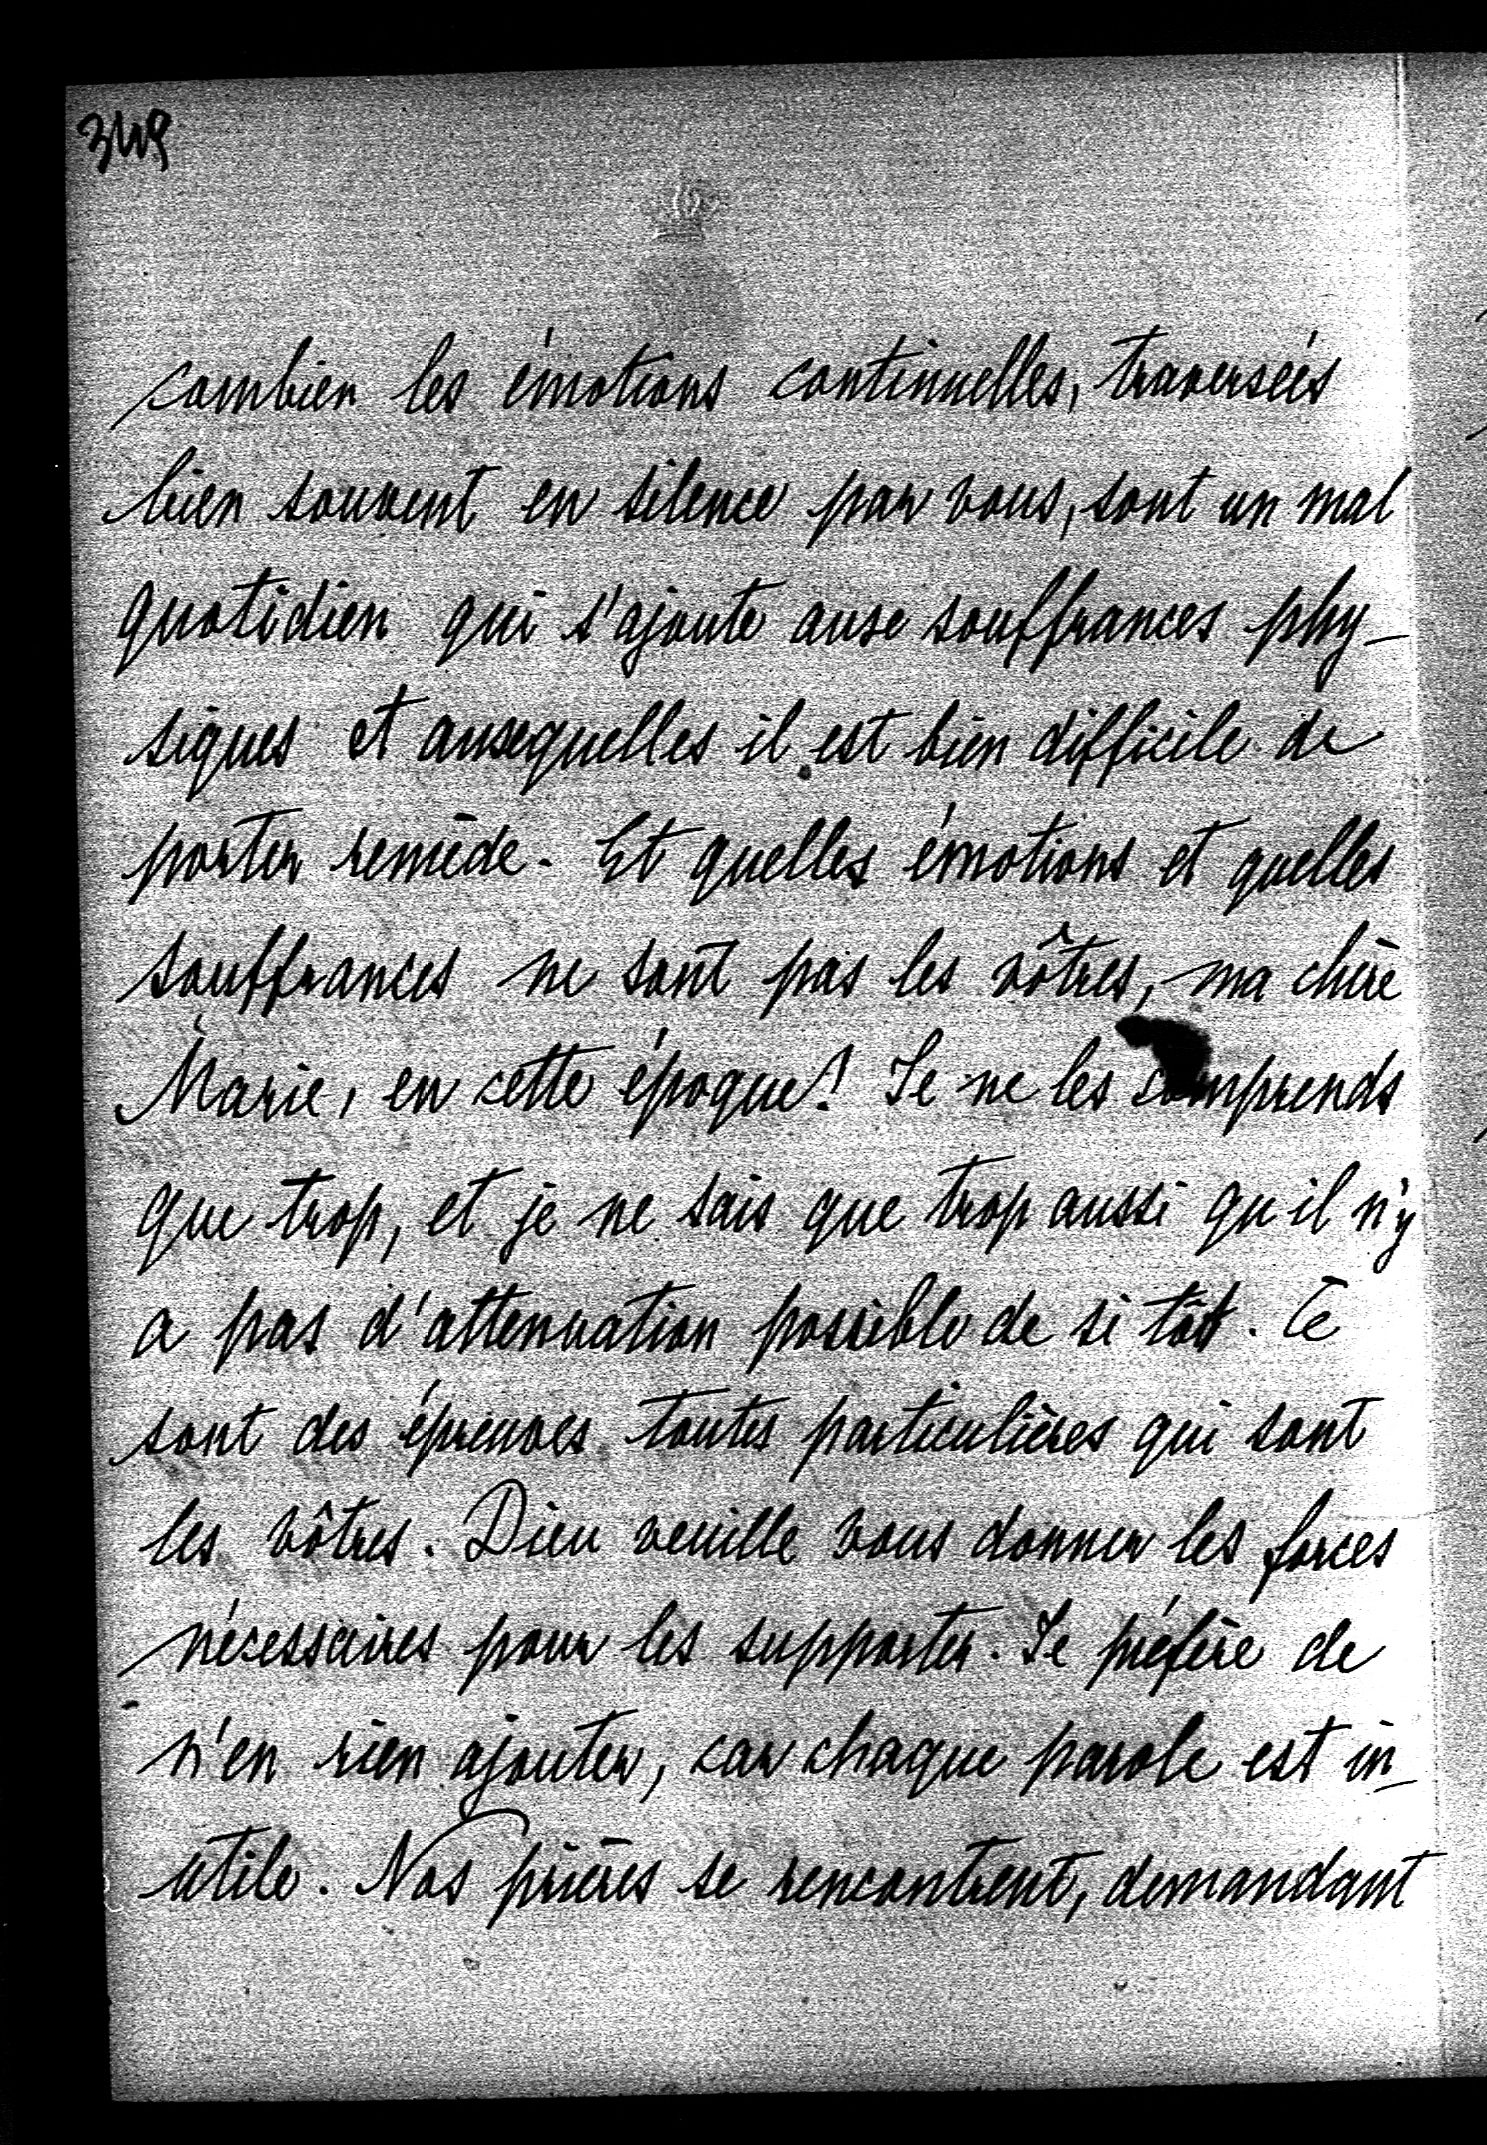 349
combien les émotions continuelles, traversées
bien souvent en silence par vous, sont un mal
quotidien qui s'ajoute aux souffrances phy-
siques et auxquelles il est bien difficile de
porter remède. Et quelles émotions et quelles
souffrances ne sont pas les vôtres, ma chère
Marie, en cette époque! Je ne les comprends
que trop, et je ne sais que trop aussi qu'il n'y
a pas d'attenuation possible de si tôt. Ce
sont des épreuves toutes particulières qui sont
les vôtres. Dieu veuille vous donner les forces
nécessaires pour les supporter. Je préfère de
n'en rien ajouter, car chaque parole est in-
utile. Nos prières se rencontrent, demandant